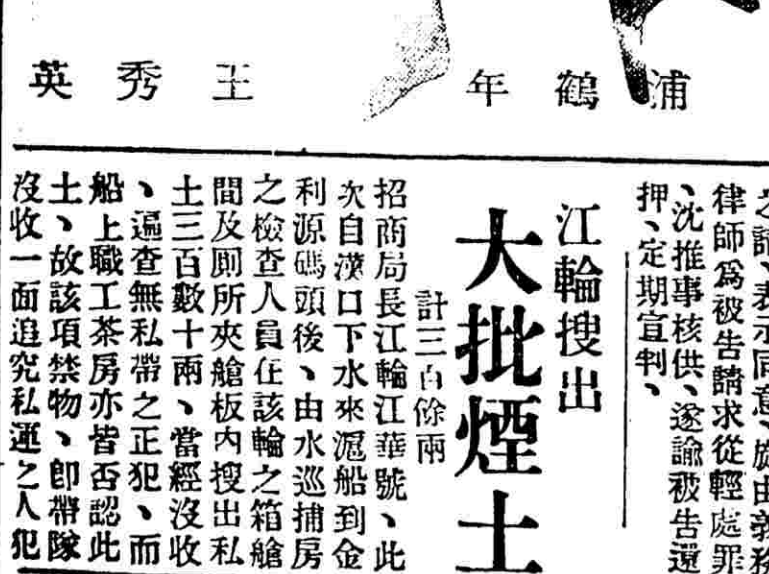 浦鶴年
王秀英
之請、表示同意、旋由義務
律師爲被告請求從輕處罪
、沈推事核供、遂諭被告還
押、定期宣判、
江輪搜出
大批煙土
計三百餘兩
招商局長江輪江華號、此
次自漢口下水來滬船到金
利源碼頭後、由水巡捕房
之檢查人員在該輪之箱艙
間及厠所夾艙板內搜出私
土三百數十兩、當經沒收
、遍查無私帶之正犯、而
船上職工茶房亦皆否認此
土、故該項禁物、卽帶隊
沒收一面追究私運之人犯